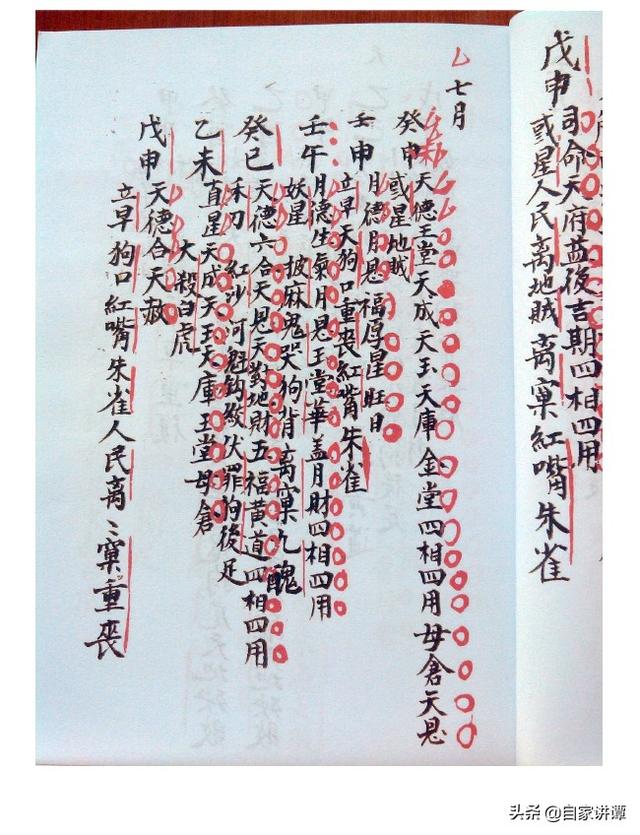 戊申司命天府益後吉期四相四用
或星人民离地賊离窠紅嘴朱雀
七月
癸申天德玉堂天成天玉天庫金堂四相四用母倉天恩
或星地賊
壬申月德月恩福厚星旺日
立早天狗口重喪紅嘴朱雀
壬午月德生氣月恩玉堂華盖月財四相四用
妖星披麻鬼哭狗背离窠九醜
癸巳天德六合天恩天對地財五福黄道四相四用
禾刃紅沙河魁鈎絞伏罪狗後足
乙未直星天成天玉天庫玉堂母倉
大殺白虎
戊申天德合天赦
立早狗口紅嘴朱雀人民离〻窠重喪
头条 @自家讲谭